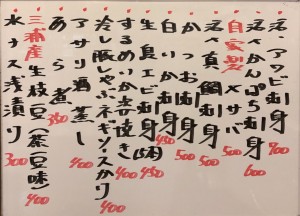 活アワビ刺身 700
活かんぱち刺身 600
自家製〆サバ 500
活真鯛刺身 500
かつお刺身 500
白いか刺身 450
生島エビ刺身(5本) 450
するめいか岩焼き 400
冷し豚しゃぶネギソースかけ 400
アサリ酒蒸し 400
あら煮 350
三浦産生枝豆(茶豆味) 400
水ナス浅漬り 300